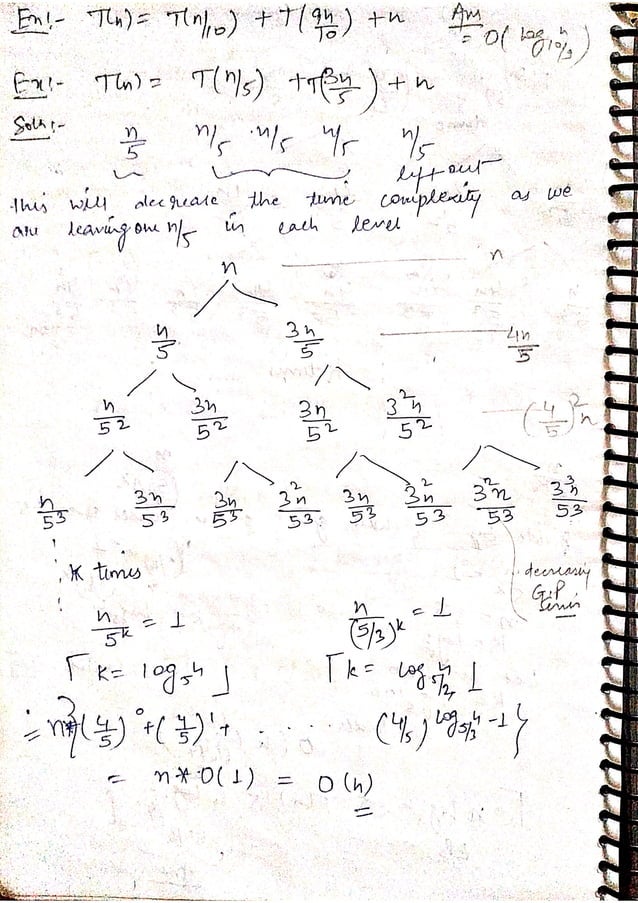 Ex:- T(n) = T(n/10) + T(9n/10) + n Ans = O(log n 10/9)
Ex:- T(n) = T(n/5) + T(3n/5) + n
Soln:- n/5 n/5 n/5 n/5 n/5
left out
this will decrease the time complexity as we
are leaving one n/5 in each level
n n
n/5 3n/5 4n/5
n/5² 3n/5² 3n/5² 3²n/5² (4/5)²n
n/5³ 3n/5³ 3n/5³ 3²n/5³ 3n/5³ 3²n/5³ 3²n/5³ 3³n/5³
K times
decreasing
G.P
series
n/5ᵏ = 1 n/(5/3)ᵏ = 1
⌈k = log₅n⌋ ⌈k =
= n*{(4/5)⁰ + (4/5)¹ + ...... (4/5)^(log 5/3 n - 1)}
= n * O(1) = O(n)